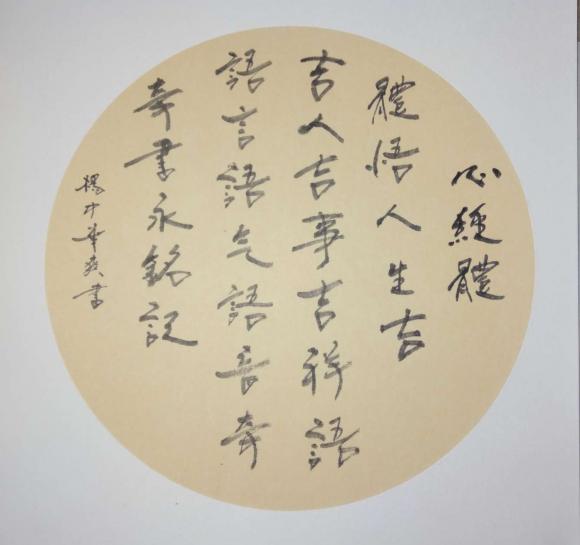 心經體
體悟人生吉
吉人吉事吉祥語
語言語气語音奇
奇書永銘記
楊中華爽書